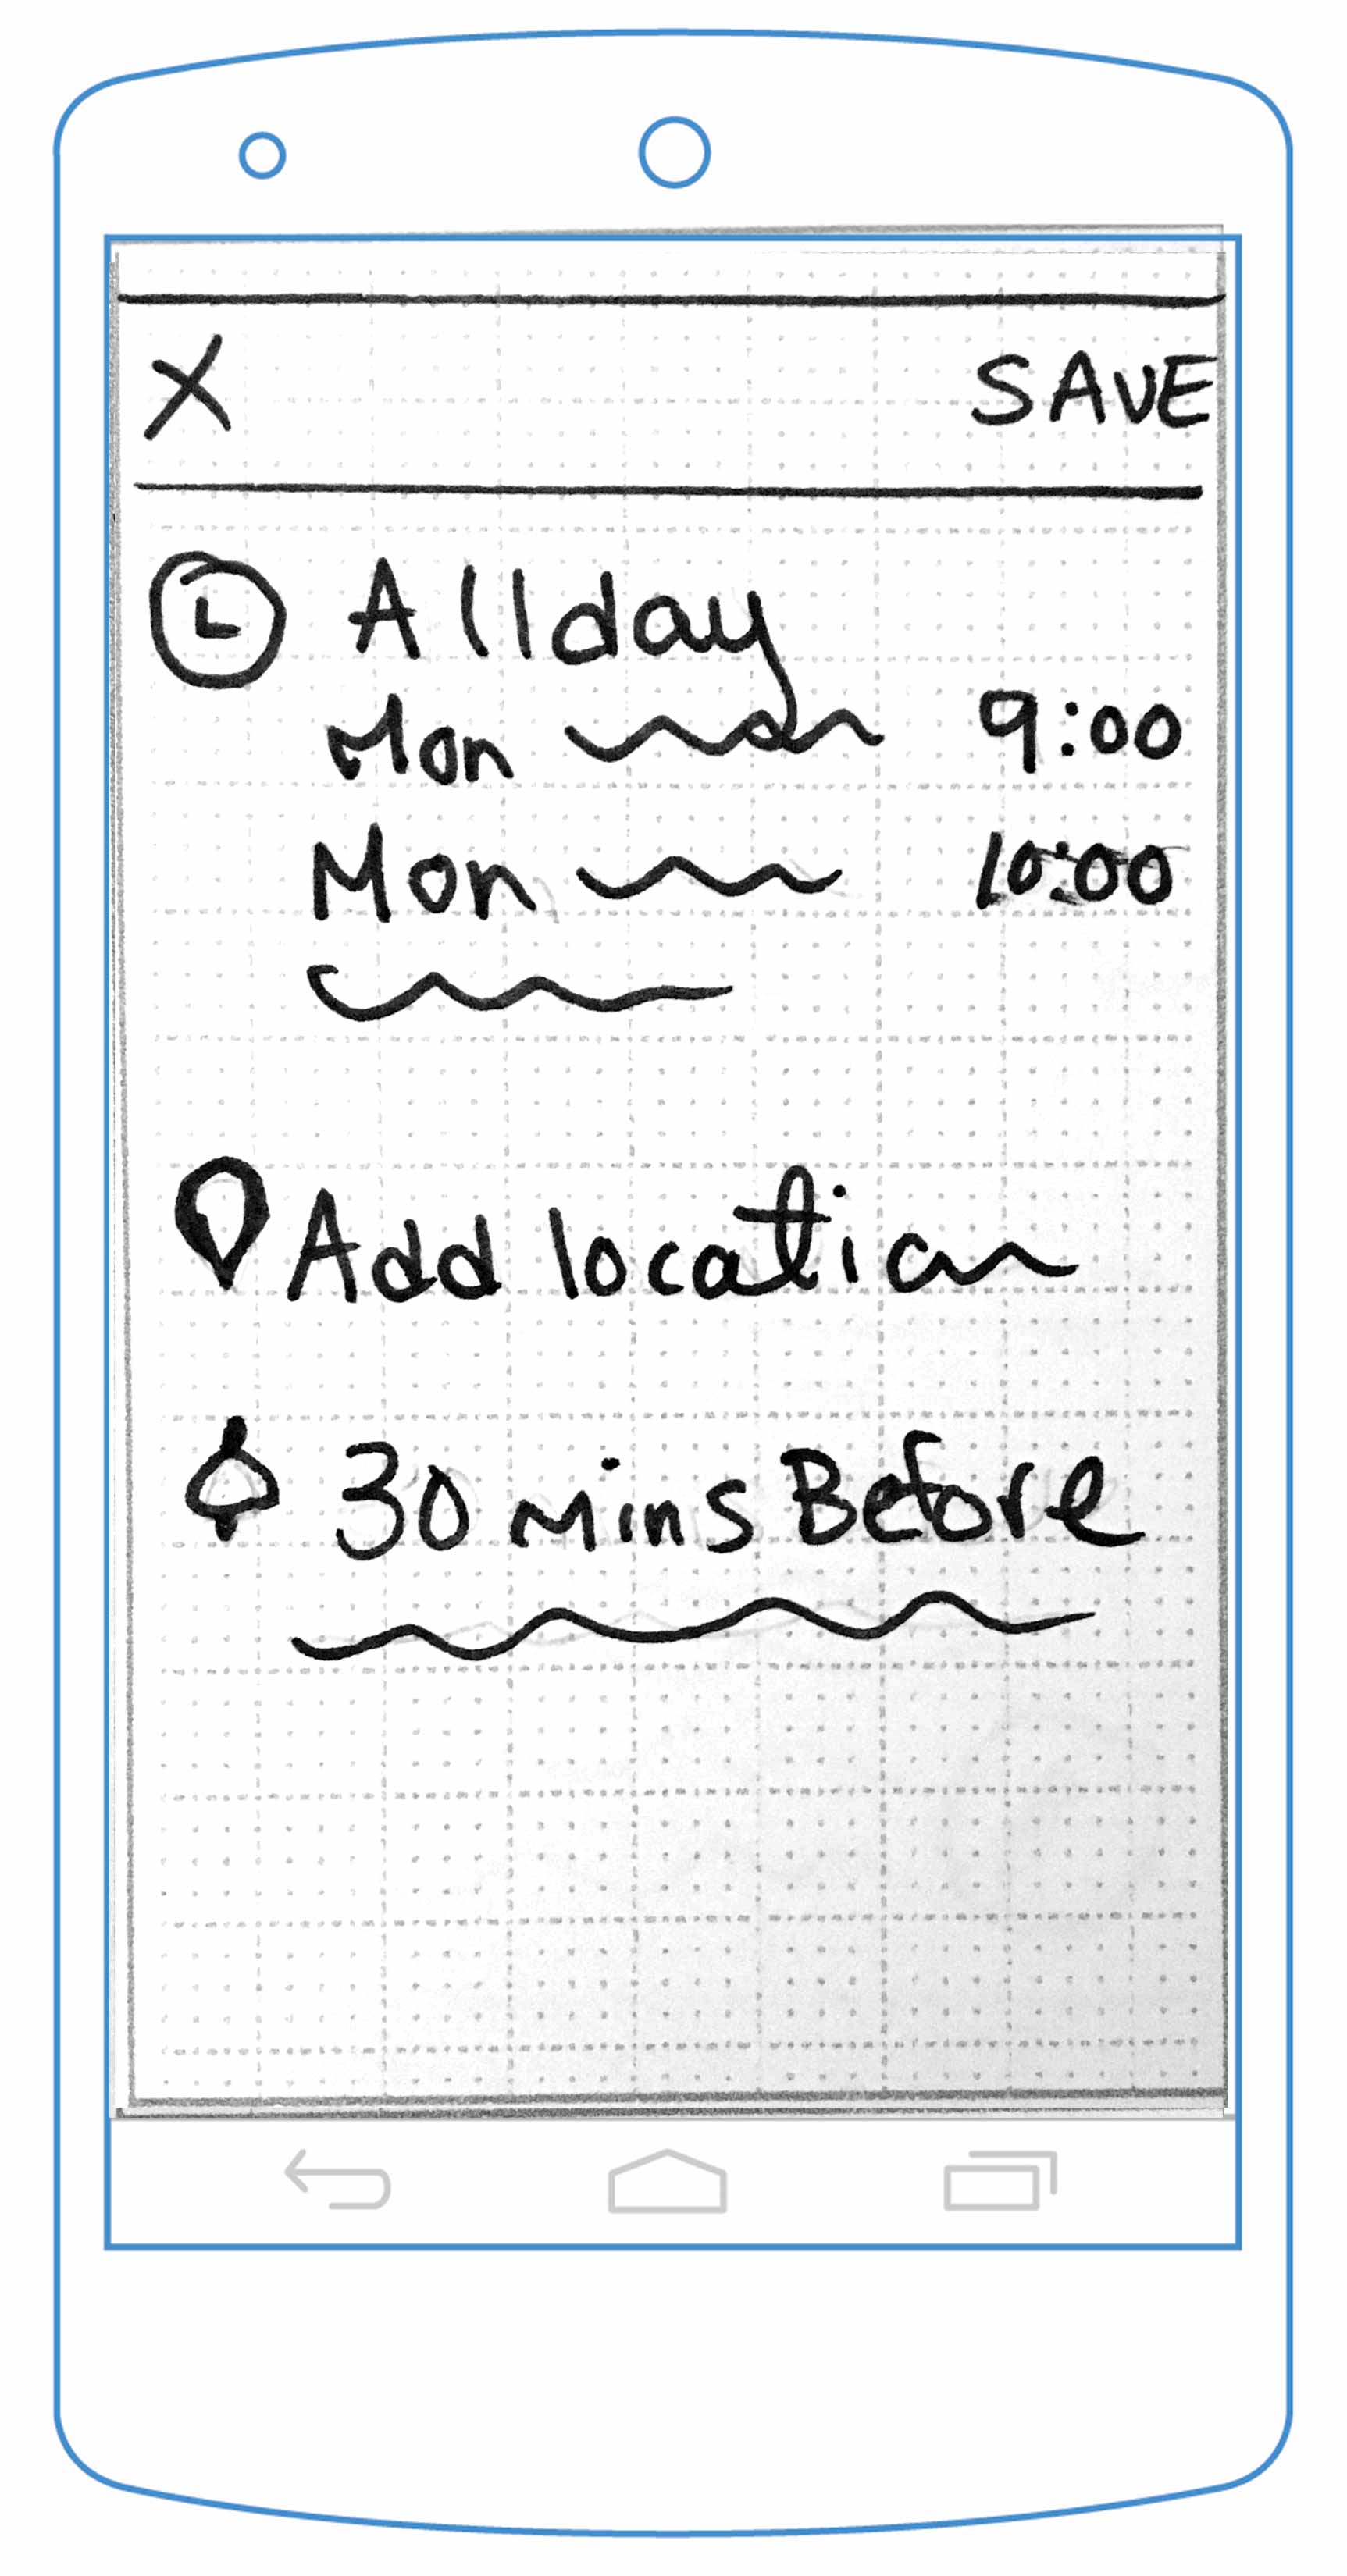 X SAVE
Allday
Mon 9:00
Mon 10:00
Add location
30 mins Before